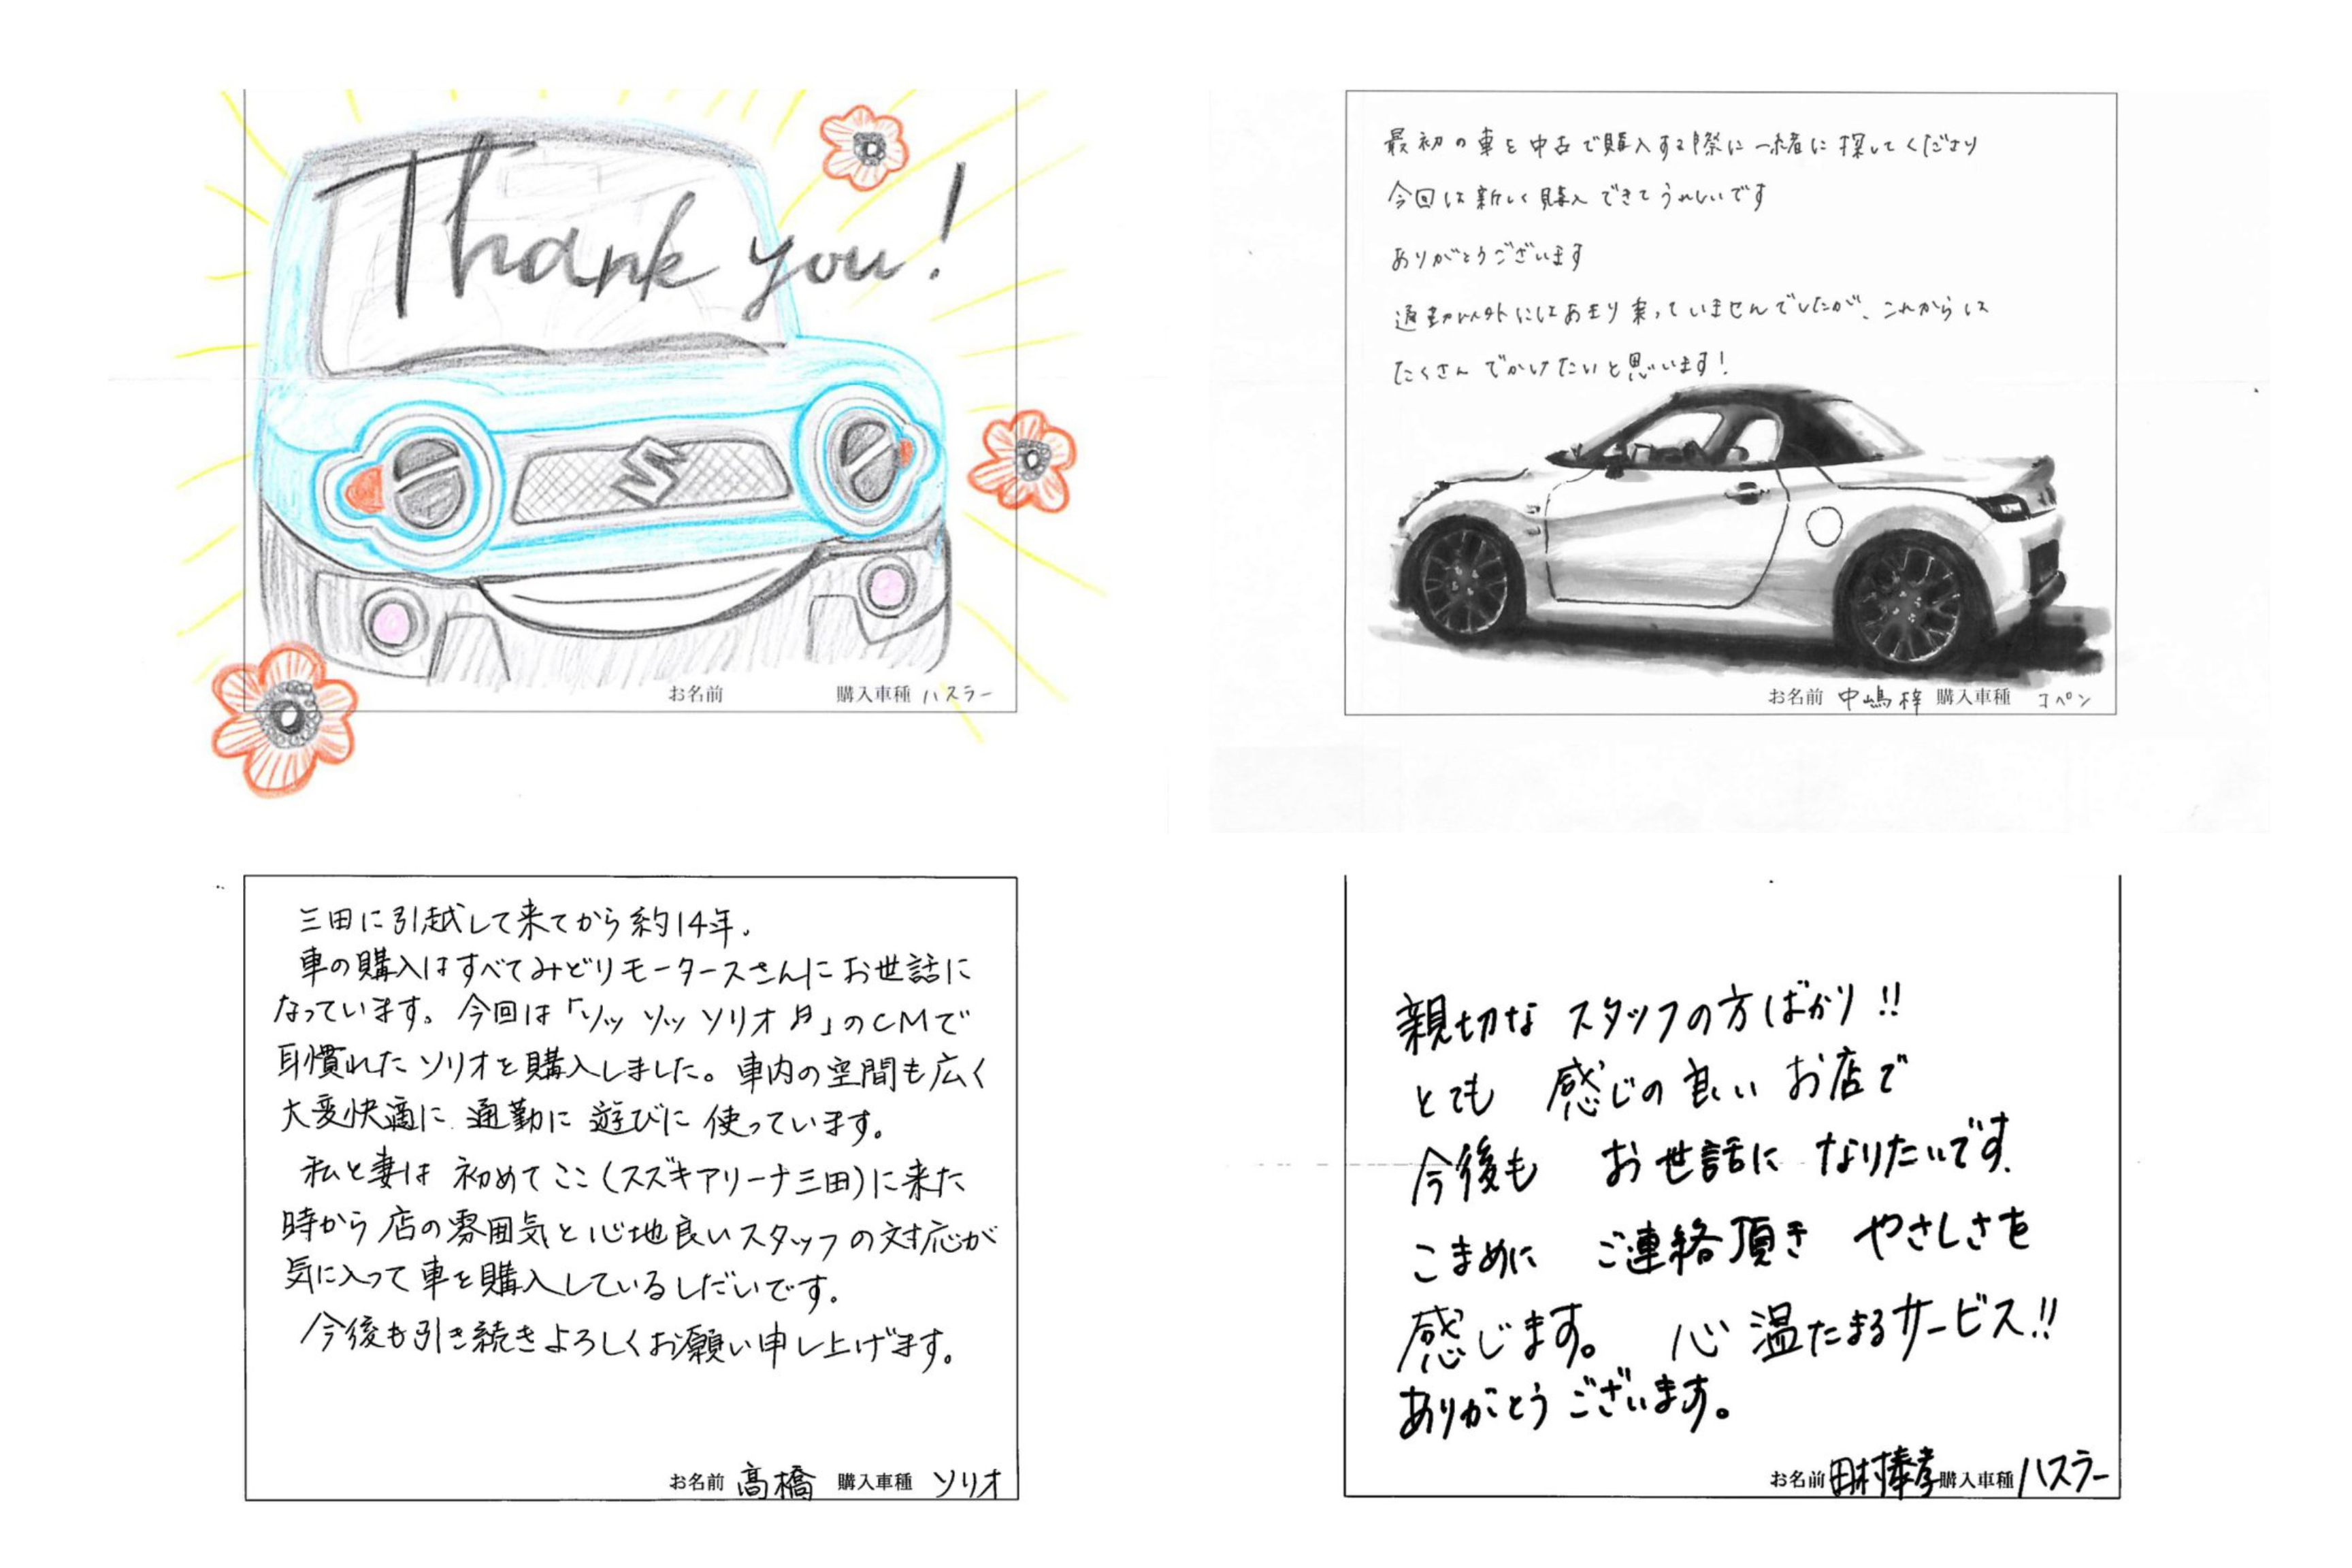 Thank you!
お名前 購入車種 ハスラー
最初の車を中古で購入する際に一緒に探してくださり
今回は新しく購入できてうれしいです
ありがとうございます
通勤以外にはあまり乗っていませんでしたが、これからは
たくさんでかけたいと思います!
お名前 中嶋梓 購入車種 コペン
三田に引越して来てから約14年。
車の購入はすべてみどりモータースさんにお世話に
なっています。今回は「ソッ ソッ ソリオ♬」のCMで
耳慣れたソリオを購入しました。車内の空間も広く
大変快適に通勤に遊びに使っています。
私と妻は初めてここ(スズキアリーナ三田)に来た
時から店の雰囲気と心地良いスタッフの対応が
気に入って車を購入しているしだいです。
今後も引き続きよろしくお願い申し上げます。
お名前 高橋 購入車種 ソリオ
親切な スタッフの方ばかり!!
とても 感じの良い お店で
今後も お世話に なりたいです.
こまめに ご連絡頂き やさしさを
感じます。 心温たまるサービス!!
ありがとうございます。
お名前 田村 購入車種 ハスラー